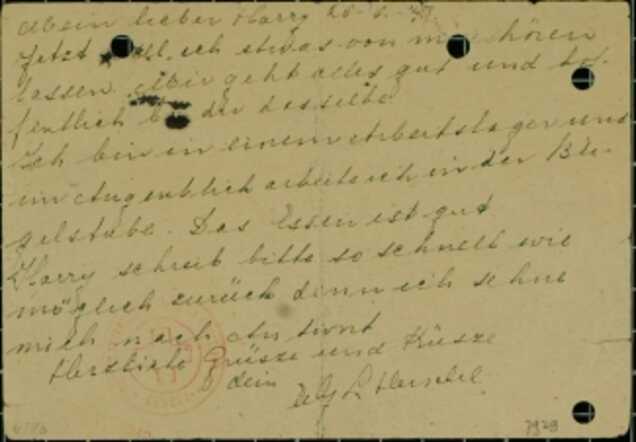 Mein lieber Harry 28.6.43
Jetzt will ich etwas von mir hören
lassen. Mir geht alles gut und hof-
fentlich bei dir dasselbe
Ich bin in einem Arbeitslager und
im Augenblick arbeite ich in der Bü-
gelstube. Das Essen ist gut
Harry schreib bitte so schnell wie
möglich zurück denn ich sehne
mich nach Antwort
Herzliche Grüsze und Küsze
dein
Herschel
7929